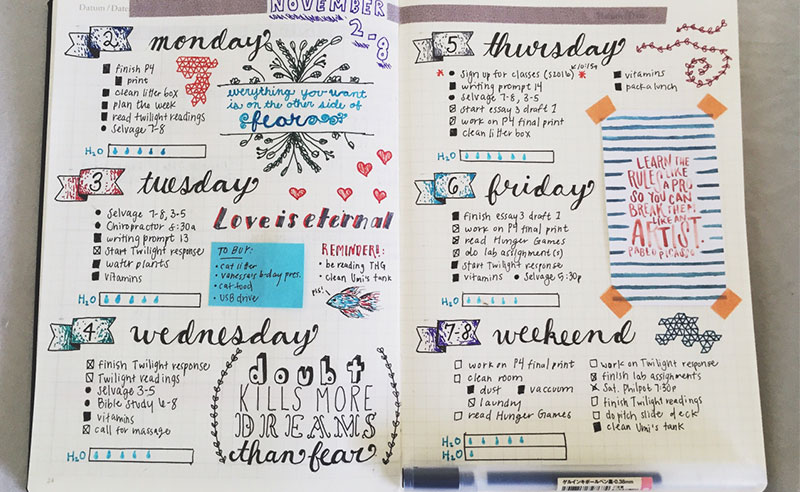 Datum / Date:
NOVEMBER
2-8
2 monday
finish P4
print
clean litter box
plan the week
read twilight readings
Selvage 7-8
H₂O
everything you want
is on the other side of
fear
3 tuesday
Selvage 7-8, 3-5
Chiropractor 8:30a
writing prompt 13
Start Twilight response
water plants
vitamins
H₂O
Love is eternal
TO BUY:
cat litter
Vanessa's b-day pres.
cat food
USB drive
REMINDER!:
be reading THG
clean Umi's tank
pls!
4 wednesday
finish Twilight response
Twilight readings
Selvage 3-5
Bible Study 6-8
vitamins
call for massage
H₂O
doubt
KILLS MORE
DREAMS
than fear
24
5 thursday
Sign up for classes (S2016)
writing prompt 14
Selvage 7-8, 3-5
start essay 3 draft 1
work on P4 final print
clean litter box
H₂O
vitamins
pack a lunch
LEARN THE
RULES LIKE
A PRO
SO YOU CAN
BREAK THEM
LIKE AN
ARTIST.
PABLO PICASSO
6 friday
finish essay 3 draft 1
work on P4 final print
read Hunger Games
do lab assignment(s)
start Twilight response
vitamins • Selvage 5:30p
H₂O
7-8 weekeend
work on P4 final print
clean room
dust vaccuum
laundry
read Hunger Games
H₂O
H₂O
work on Twilight response
finish lab assignments
Sat. Philpot 7:30p
finish Twilight readings
do pitch slide deck
clean Umi's tank
ゲルインキボールペン黒・0.38mm